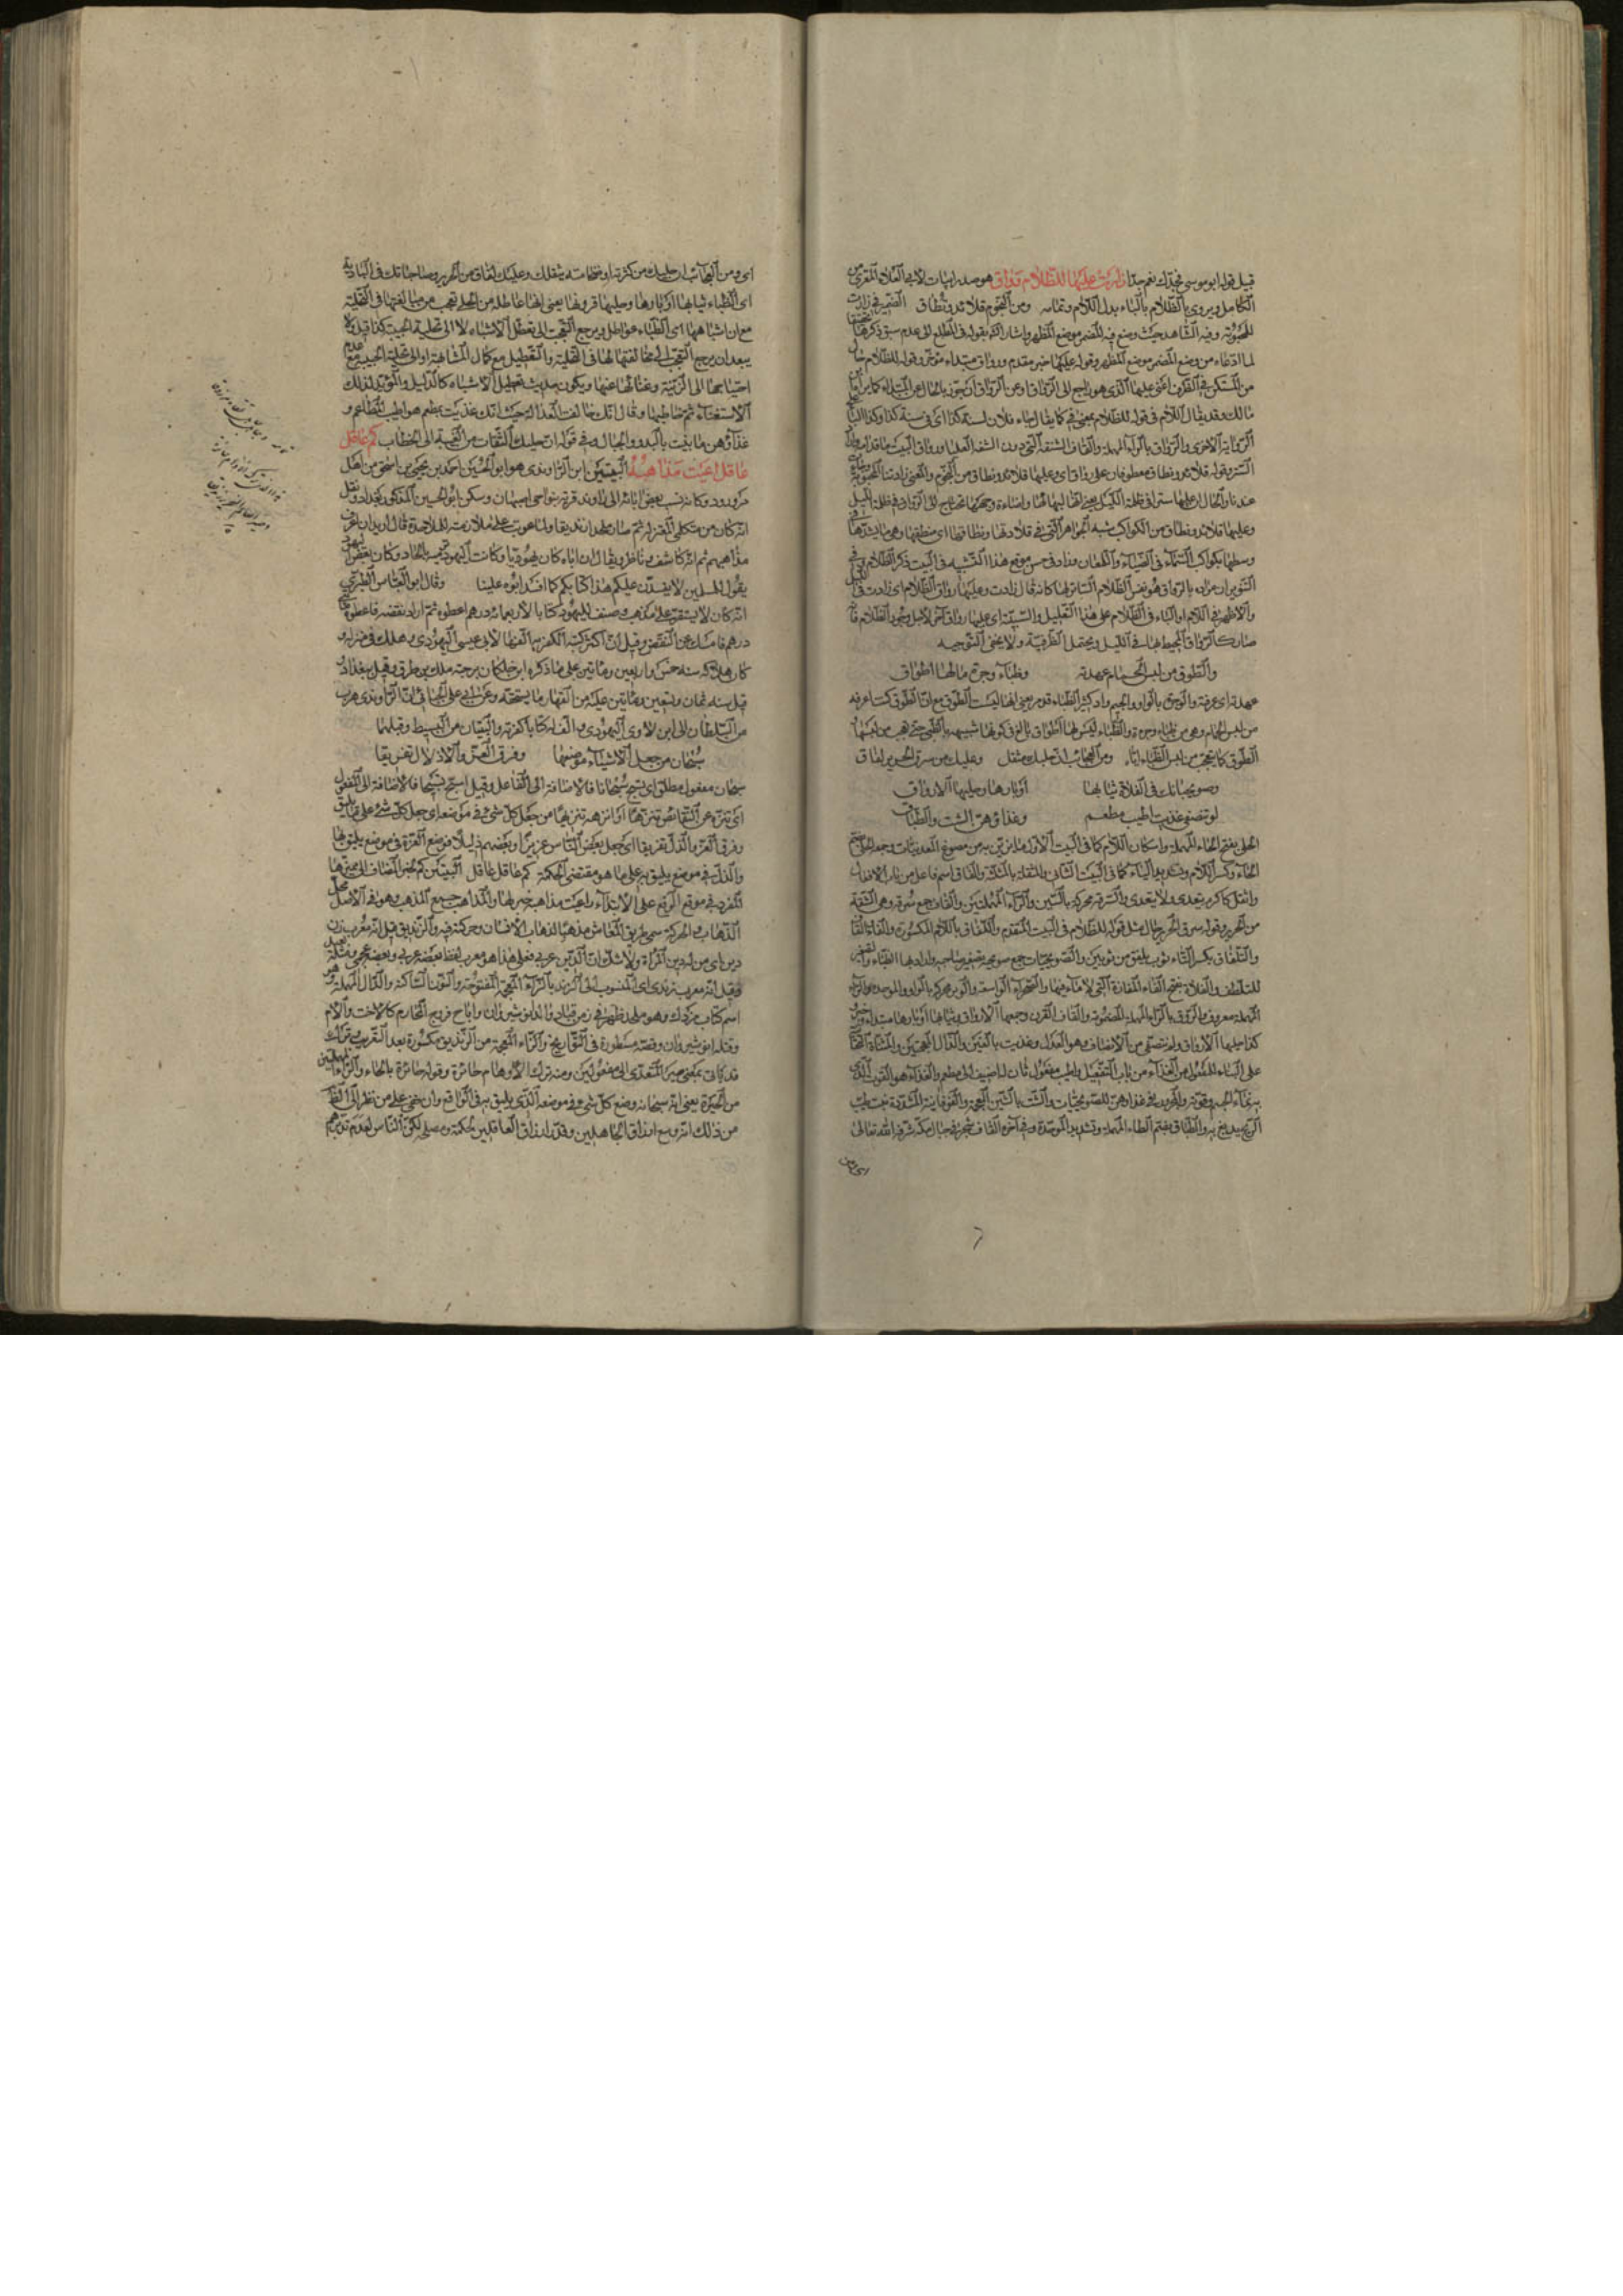 قبيل قوله ابو موسى فجدك نعم جدا زارت عليها للظلام رواق هو صدر ابيات لابي العلاء المعري من
الكامل ويروى بالظلام بالباء بدل اللام وتمامه ومن النجوم قلائد ونطاق الضمير في زارت
للمحبوبة وفيه الشاهد حيث وضع فيه المضمر موضع المظهر واشار اليه بقوله في المطلع الى عدم سبق ذكرها
لما ادعاه من وضع المضمر موضع المظهر وقوله عليها خبر مقدم ورواق مبتداء مؤخر وقوله للظلام حال
من المستكن في الظرف اعني عليها الذي هو راجع الى الرواق او عن الرواق ان جوز بالحال عن المبتداء كما يراه ابن
مالك وقد يقال اللام في قوله للظلام بمعنى في كما يقال جاء فلان لسنة كذا اي في سنة كذا
الرواية الاخرى والرواق بالراء المهملة والقاف الشقة التي دون الشقة العليا ورواق البيت ما قدامه
الستر وقوله قلائد ونطاق معطوفان على رواق اي وعليها قلائد ونطاق من النجوم والمعنى زادتنا المحبوبة
عندنا والحال ان عليها سترا في ظلمة الليل
وعليها قلائد ونطاق من الكواكب شبه الجواهر التي في قلادتها ونطاقها اي منطقتها وهي ما يشد بها
وسطها بكواكب السماء في الضياء واللمعان وزاد في حسن موقع هذا التشبيه في البيت ذكر الظلام وفي
التنوير ان مراده بالرواق هو نفس الظلام الساتر لها كانه قال زارت وعليها رواق الظلام اي زارت في الليل
والاظهر في اللام او الباء في الظلام على هذا التعليل والسببية اي عليها رواق آخر لاجل وجود الظلام فانه
صار كالرواق المحيط بها في الليل ويحتمل الظرفية ولا يخفى التوجيه
والطوق من لبس الحمام عهدته وظباء وجرة ما لها اطواق
عهدته اي عرفته والوجرة بالواو والجيم واد كثير الظباء
من لبس الحمام وهي من ظباء وجرة والظباء ليس لها اطواق
الطوق كما يتعجب من لبس الظباء اياه ومن العجائب ان حليك مثقل وعليك من سرق الحرير لفاق
وصويحباتك في الفلاة ثيابها اوبارها وحليها الارواق
لم تنصفي غذيت اطيب مطعم وغذاؤهن الشث والطباق
الحلى بفتح الحاء المهملة واسكان اللام كما في البيت الاول ما يزين به من مصوغ المعدنيات وجمعه الحلي بضم
الحاء وكسر اللام وتشديد الياء كما في البيت الثاني والمثقل بالمثلثة والقاف اسم فاعل من باب الافعال
واثقل كاكرم يتعدى ولا يتعدى والسرقة محركة بالسين والراء المهملتين والقاف جمع سرقة وهي الشقة
من الحرير وقوله سرق الحرير حال مثل قوله للظلام في البيت المتقدم واللفاق باللام المكسورة والفاء والقاف
والتلفاق بكسر التاء ثوب يلفق من ثوبين والصويحبات جمع صويحبة تصغير صاحبة والمراد بها الظباء والتصغير
للتلطف والفلاة بفتح الفاء المفازة التي لا ماء فيها والصحراء الواسعة والوبر محركة بالواو والموحدة والراء
المهملة معروف والروق بالراء المهملة المفتوحة والقاف القرن وجمعها الارواق وثيابها اوبارها مبتداء وخبر
كذا حليها الارواق ولم تنصفي من الانصاف وهو العدل وغذيت بالغين والذال المعجمتين والمثناة التحتانية
على البناء للمفعول من الغذاء من باب التفعيل واطيب مفعول ثان له اضيف الى مطعم والغذاء هو القوت الذي
به نماء الجسم وقوته والمجرور في غذاؤهن للصويحبات والشث بالشين المعجمة والفوقانية المشددة نبت طيب
الريح يدبغ به والطباق بضم الطاء المهملة وتشديد الموحدة وفي آخره القاف شجر في جبال مكة شرفها الله تعالى
اي ومن العجائب ان حليك من كثرته او ضخامته يثقلك وعليك لفاق من الحرير وصاحباتك في البادية
اي الظباء ثيابها اوبارها وحليها قرونها يعني انها عاطلة من الحلي تعجب من مخالفتها في التحلية
مع ان اشباهها اي الظباء عواطل ويرجع التعجب الى تعطل الاشباه لا الى تحلية الحبيب كذا قيل ولا
يبعد ان يرجع التعجب الى مخالفتها لها في التحلية والتعطيل مع كمال المشابهة او الى تحلية الحبيب مع عدم
احتياجها الى الزينة وغنائها عنها ويكون حديث تعطيل الاشباه كالدليل والمؤيد لذلك
الاستغناء ثم خاطبها وقال انك خالفت العدالة حيث انك غذيت بطعم هو اطيب المطاعم و
غذاؤهن ما ينبت بالبدو والجبال وفي قوله ان حليك التفات من الغيبة الى الخطاب كم عاقل
عاقل اعيت مذاهبه البيتين ابن الراوندي هو ابو الحسين احمد بن يحيى بن اسحق من اهل
مرو رود وكانه نسب بعض ابائه الى راوند قرية بنواحي اصبهان وسكن ابو الحسين المذكور بغداد ونقل
انه كان من متكلمي المعتزلة ثم صار ملحدا زنديقا ولما عوتب على ملازمته للملاحدة قال اريد ان اعرف
مذاهبهم ثم انه كاشف وناظر ويقال ان اباه كان يهوديا وكانت اليهود ترميه بالالحاد وكان بعض اليهود
يقول للمسلمين لا يفسدن عليكم هذا كتابكم كما افسد ابوه علينا وقال ابو العباس الطبري
انه كان لا يستقر على مذهب وصنف لليهود كتابا لاربعمائة درهم اعطوه ثم اراد نقضه فاعطوه مائة
درهم فامسك عن النقض وقيل ان اكثر كتبه الكفرية الفها لابي عيسى اليهودي وهلك في منزله و
كان هلاكه سنة خمس واربعين ومائتين على ما ذكره ابن خلكان برحبة ملك بن طوق وقيل ببغداد
قيل سنة ثمان وتسعين ومائتين عليه من القهار ما يستحقه وعن ابي علي الجبائي ان الراوندي هرب
من السلطان الى ابن لاوي اليهودي والف له كتابا كفرية والبيتان من البسيط وقبلهما
سبحان من جعل الاشياء موضعها وفرق العز والاذلال تفريقا
سبحان مفعول مطلق اي نسبح سبحانا فالاضافة الى الفاعل وقيل اسبح تسبيحا فالاضافة الى المفعول
اي تنزه عن النقائص تنزها او انزهه تنزيها من جعل كل شيء في موضعه اي جعل كل شيء على ما يليق
وفرق العز والذل تفريقا اي جعل بعض الناس عزيزا وبعضهم ذليلا فوضع العزة في موضع يليق بها
والذلة في موضع يليق به على ما هو مقتضى الحكمة كم عاقل عاقل البيتين كم خبر المضاف الى مميزها
المفرد في موقع الرفع على الابتداء واعيت مذاهبه خبر لها والمذاهب جمع المذهب وهو في الاصل محل
الذهاب والحركة سمي طريق المعاش مذهبا لذهاب الانسان وحركته فيه والزنديق قيل انه معرب زن
دين اي من له دين المرأة ولا شك ان الدين عربي فعلى هذا هو معرب لفظ بعضه عربي وبعضه عجمي ومثله بعيد
وقيل انه معرب زندي اي المنسوب الى الزند بالزاء المعجمة المفتوحة والنون الساكنة والدال المهملة وهو
اسم كتاب مزدك وهو ملحد ظهر في زمن قباد والد انوشيروان واباح فروج المحارم كالاخت والام
وقتله انوشيروان وقصته مسطورة في التواريخ والزاء المعجمة من الزنديق مكسورة بعد التعريب وترك
قد يأتي بمعنى صير المتعدي الى مفعولين ومنه ترك الاوهام حائرة وقوله حائرة بالحاء والراء المهملتين
من الحيرة يعني انه سبحانه وضع كل شيء في موضعه الذي يليق به في الواقع وان خفي على من نظر الى الظاهر
من ذلك انه وسع ارزاق الجاهلين وقدر ارزاق العاقلين لحكمة ومصلحة لكن الناس لعدم تدبرهم